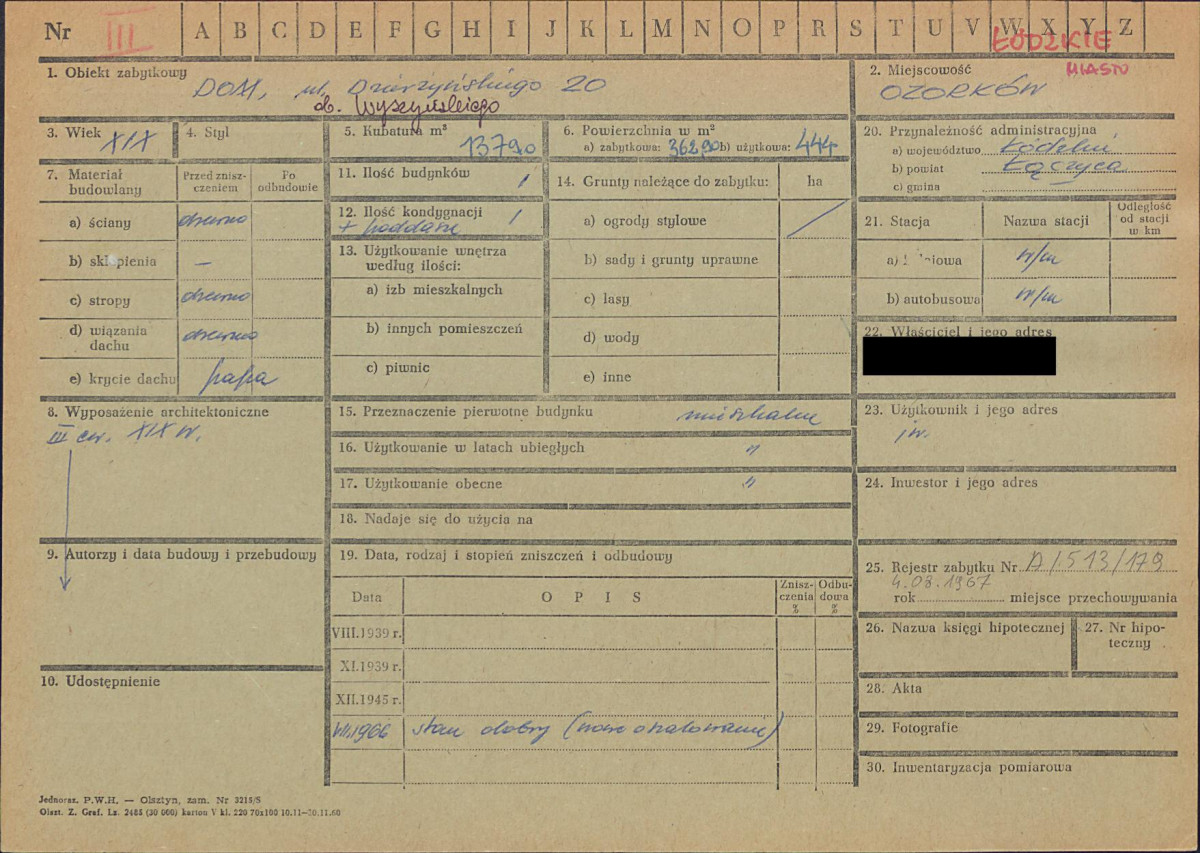 Nr III A B C D E F G H I J K L M N O P R S T U V W X Y Z
ŁÓDZKIE
MIASTO
1. Obiekt zabytkowy DOM, ul. Dzierżyńskiego 20
ob. Wyszyńskiego
2. Miejscowość
OZORKÓW
3. Wiek XIX
4. Styl
5. Kubatura m³
1379,0
6. Powierzchnia w m²
a) zabytkowa: 362,90 b) użytkowa: 444
7. Materiał budowlany
Przed zniszczeniem
Po odbudowie
a) ściany drewno
b) sklepienia —
c) stropy drewno
d) wiązania dachu drewno
e) krycie dachu papa
8. Wyposażenie architektoniczne
III ćw. XIX w.
9. Autorzy i data budowy i przebudowy
10. Udostępnienie
11. Ilość budynków 1
12. Ilość kondygnacji 1
+ poddasze
13. Użytkowanie wnętrza
według ilości:
a) izb mieszkalnych
b) innych pomieszczeń
c) piwnic
14. Grunty należące do zabytku: ha
a) ogrody stylowe
b) sady i grunty uprawne
c) lasy
d) wody
e) inne
15. Przeznaczenie pierwotne budynku mieszkalne
16. Użytkowanie w latach ubiegłych "
17. Użytkowanie obecne "
18. Nadaje się do użycia na
19. Data, rodzaj i stopień zniszczeń i odbudowy
Data OPIS Zniszczenia % Odbudowa %
VIII.1939 r.
XI.1939 r.
XII.1945 r.
VII.1966 stan dobry (nowe oszalowanie)
20. Przynależność administracyjna
a) województwo Łódzkie
b) powiat Łęczyca
c) gmina
21. Stacja Nazwa stacji Odległość od stacji w km
a) iowa w/m
b) autobusowa w/m
22. Właściciel i jego adres
23. Użytkownik i jego adres
jw.
24. Inwestor i jego adres
25. Rejestr zabytku Nr A/513/179
4.08.1967
rok miejsce przechowywania
26. Nazwa księgi hipotecznej
27. Nr hipoteczny
28. Akta
29. Fotografie
30. Inwentaryzacja pomiarowa
Jednoraz. P.W.H. — Olsztyn, zam. Nr 3215/5
Olszt. Z. Graf. Lz. 2485 (30 000) karton V kl. 220 70x100 10.11—30.11.60